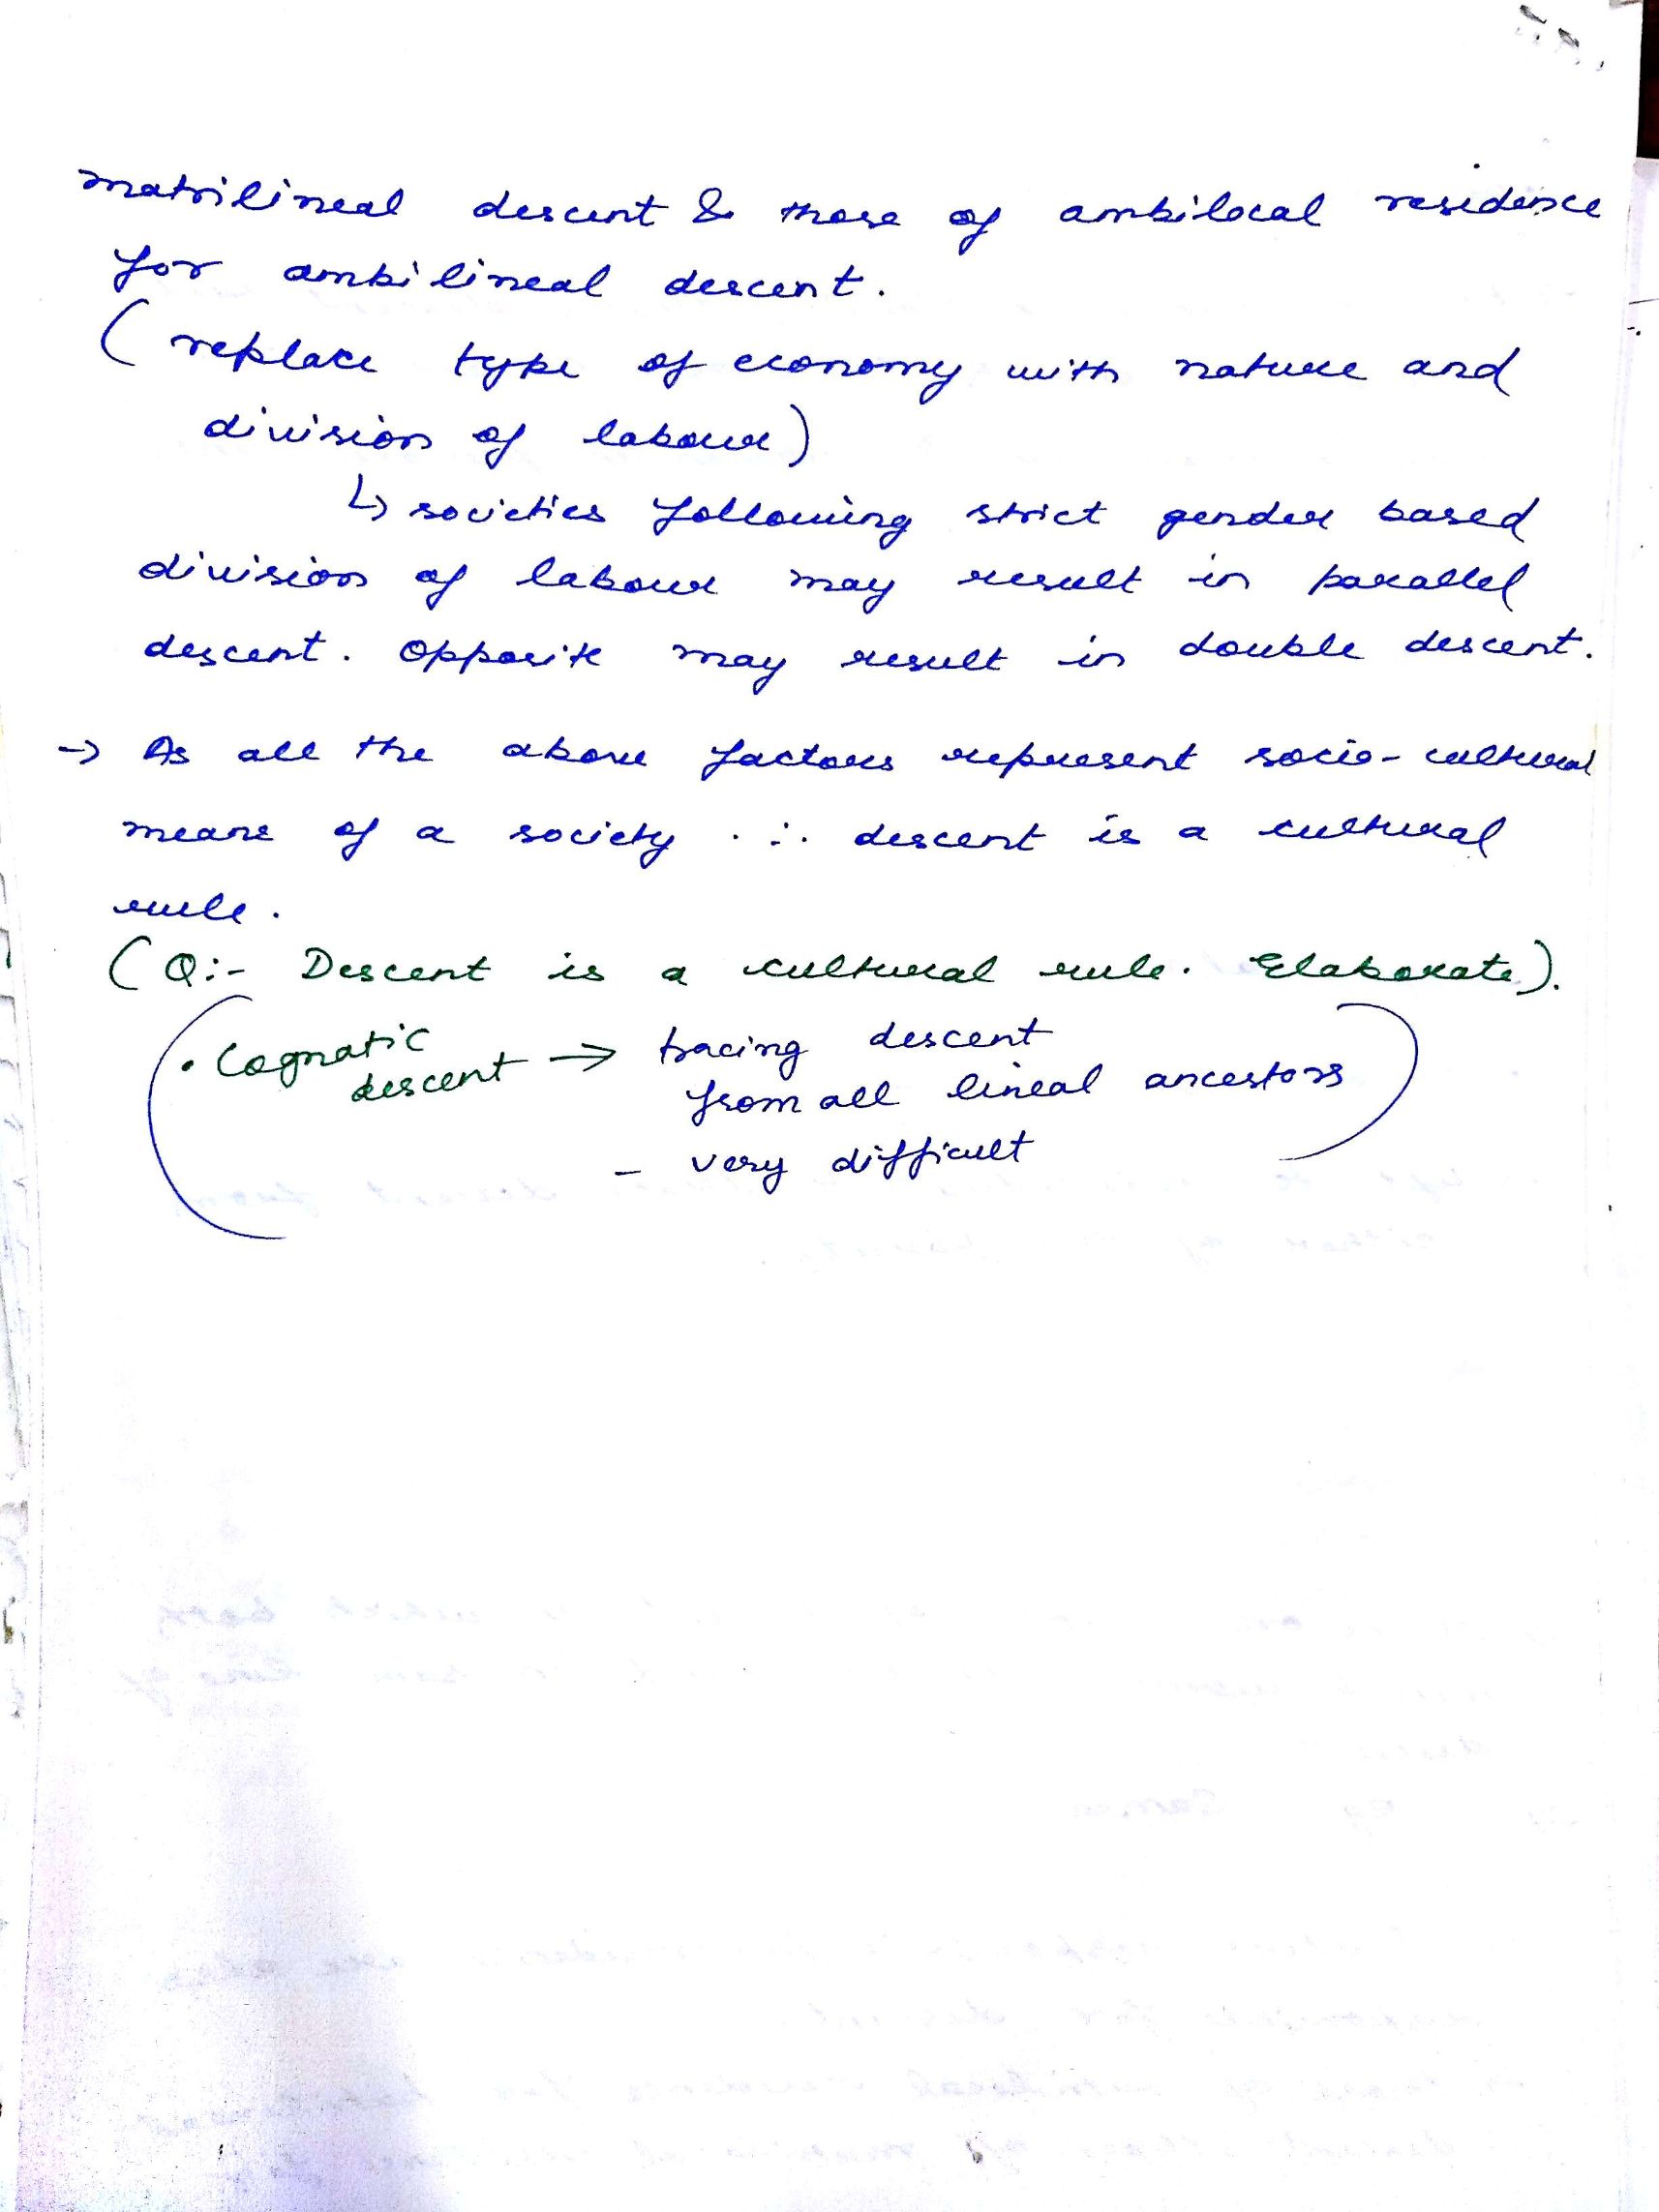 matrilineal descent & those of ambilocal residence
for ambilineal descent.
(replace type of economy with nature and
division of labour)
↳ societies following strict gender based
division of labour may result in parallel
descent. Opposite may result in double descent.
→ As all the above factors represent socio-cultural
means of a society . ∴ descent is a cultural
rule.
(Q:- Descent is a cultural rule. Elaborate).
• Cognatic descent → tracing descent
from all lineal ancestors
- very difficult